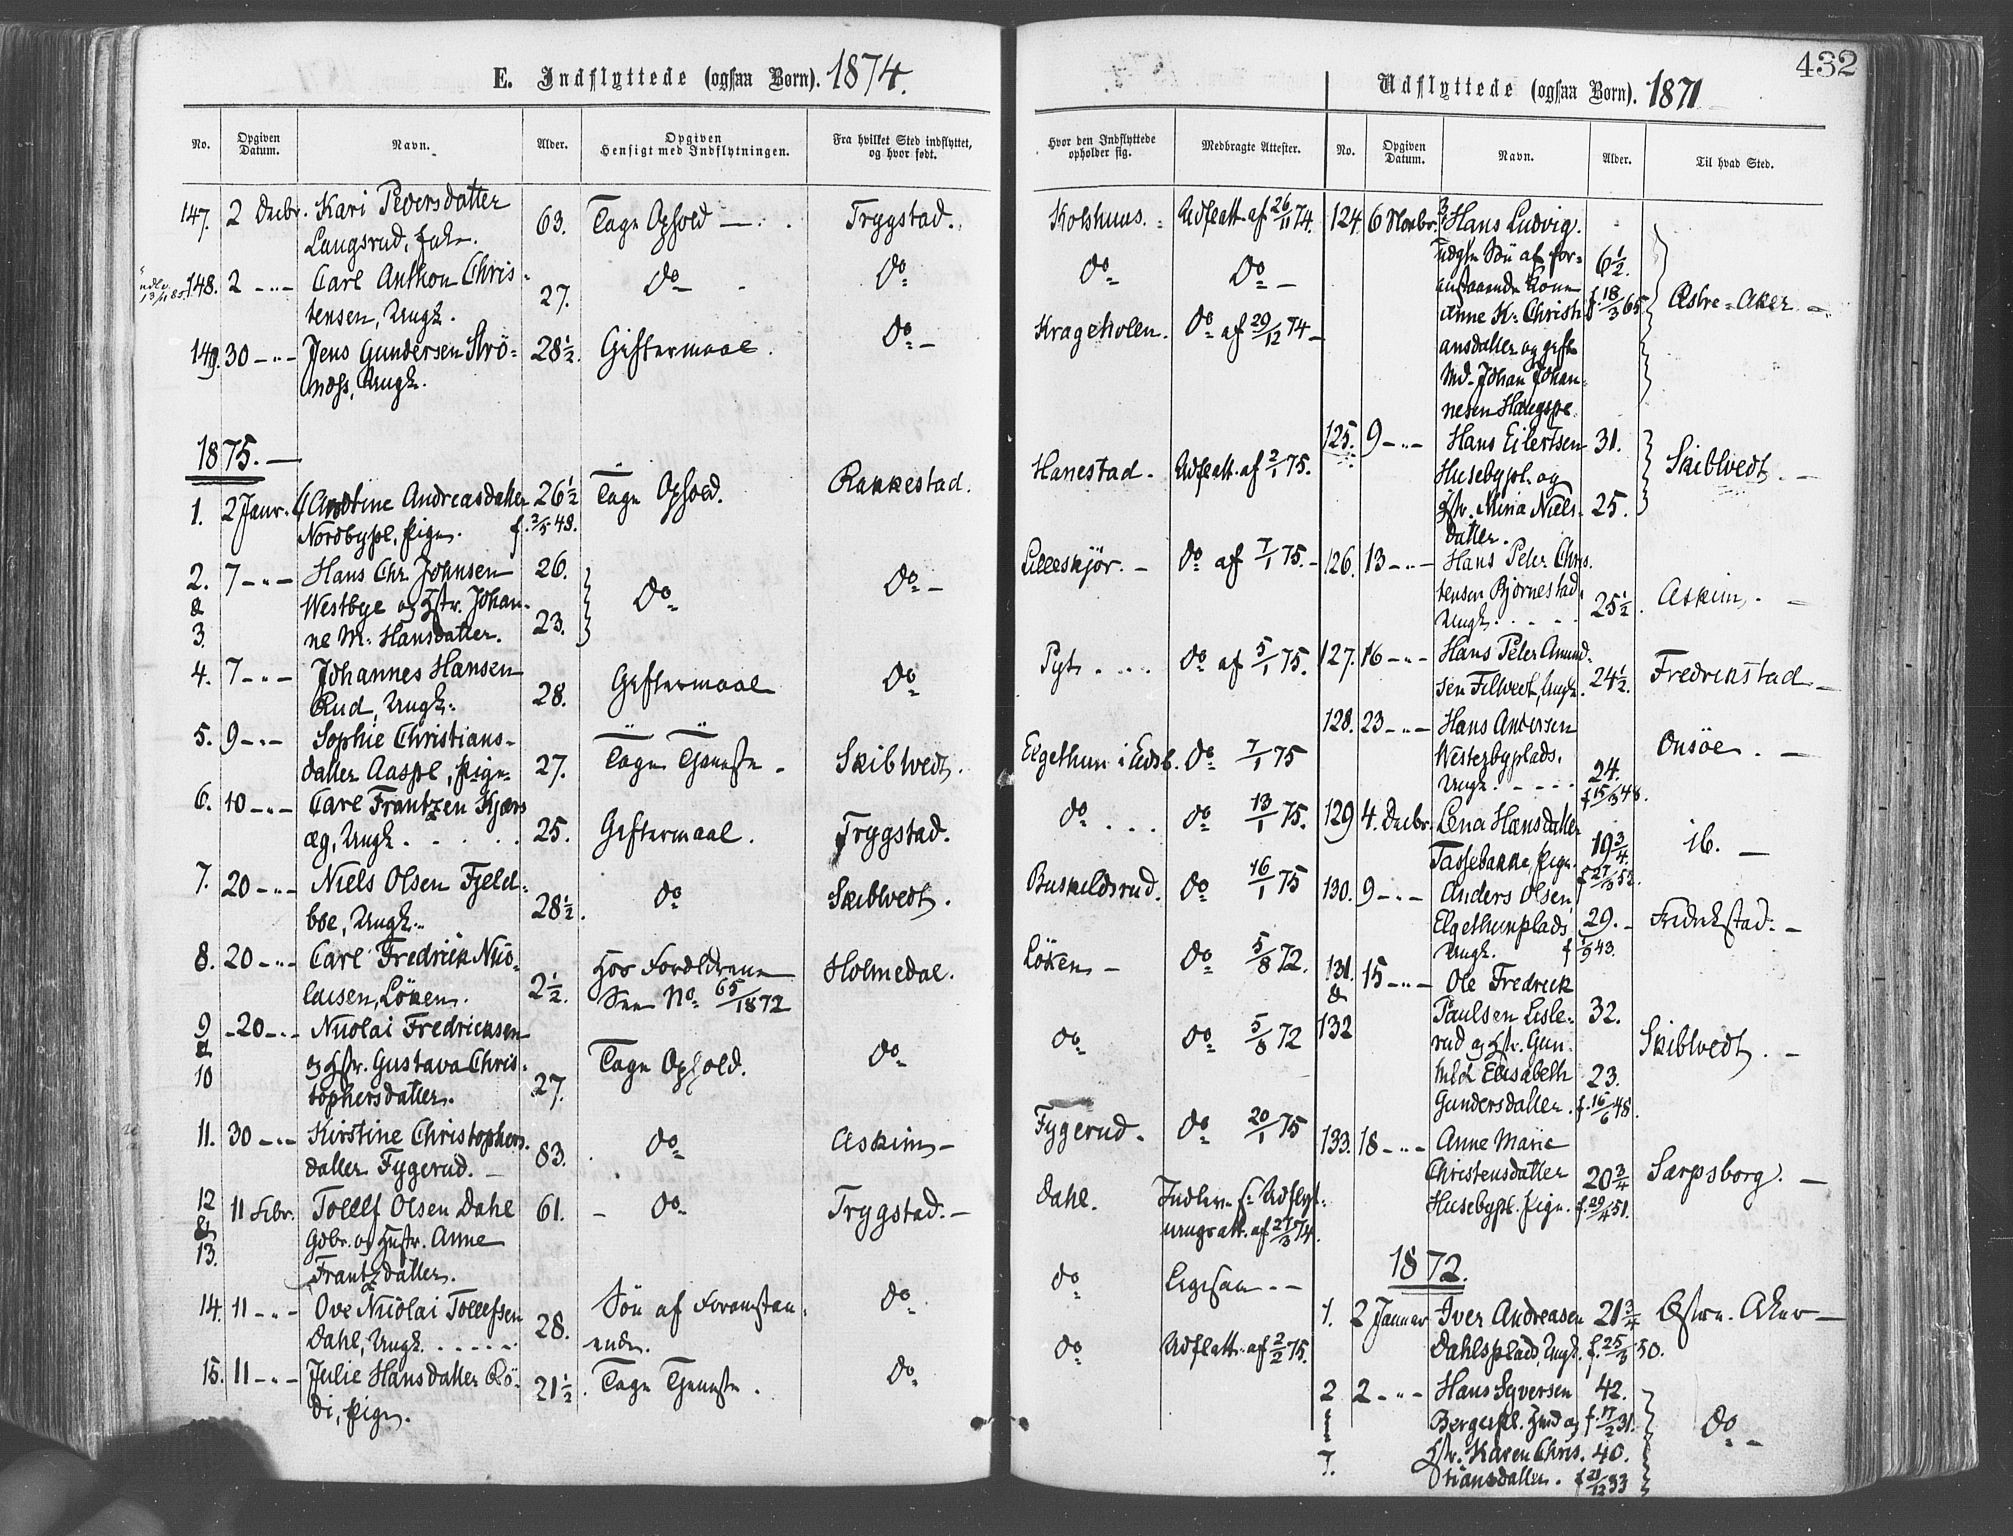 E. Indflyttede (ogsaa Børn). 1874.
No.
Opgiven
Datum.
Navn.
Alder.
Opgiven
Hensigt med Indflytningen.
Fra hvilket Sted indflyttet,
og hvor født.
147. 2 Decbr. Kari Pedersdatter 63. Tage Ophold Trygstad.
Langsrud,
148. 2 -"- Carl Anthon Chris- 27. Do Do
tensen, Ungk.
149. 30 -"- Jens Gundersen Strö- 28½. Giftermaal. Do
næss, Ungk.
1875.
1. 2 Janr. Andtine Andreasdatter 26½ Tage Ophold. Rakkestad.
Nordbypl, Pige. f. 2/5 48.
2. 7 -"- Hans Chr. Johnsen 26. Do Do
& Westbye og Hstr. Johan-
3. ne M. Hansdatter. 23.
4. 7 -"- Johannes Hansen 28. Giftermaal Do
Rud, Ungk.
5. 9 -"- Sophie Christians- 27. Tage Tjeneste Skibtvedt.
datter Aaspl, Pige
6. 10 -"- Carl Frantzen Kjærs 25. Giftermaal. Trygstad.
æg, Ungk.
7. 20 -"- Niels Olsen Fjeld- 28½. Do Skibtvedt.
boe, Ungk.
8. 20 -"- Carl Fredrick Nico- 2½. Hos Forældrene Holmedal.
laisen, Löken. See No. 65/1872
9 20 -"- Nicolai Fredricksen Tage Ophold. Do
& og Hstr. Gustava Chris-
10 tophersdatter. 27.
11. 30 -"- Kirstine Christophers- 83. Do Askim
datter Fygerud.
12 11 Febr. Tollef Olsen Dahl 61. Do Trygstad.
& Gdbr. og Hustr. Anne
13. Frantzdatter.
14. 11 -"- Ove Nicolai Tollefsen 28. Sön af Foranstaa- Do
Dahl, Ungk. ende.
15. 11 -"- Julie Hansdatter Rö- 21½. Tage Tjeneste. Do
di, Pige.
432
Udflyttede (ogsaa Børn). 1871
Hvor den Indflyttede
opholder sig.
Medbragte Attester.
No.
Opgiven
Datum.
Navn.
Alder.
Til hvad Sted.
Kolshuus. Udflatt. af 26/11 74.
Do Do
Krageholen. Do af 29/12 74
Hanestad. Udflatt. af 2/1 75.
Lilleskjör. Do af 7/1 75.
Pyt Do af 5/1 75.
Elgethun i Eidsb. Do 7/1 75
Do Do 13/1 75.
Buskildsrud. Do 16/1 75
Löken Do 5/8 72.
Do Do 5/8 72
Fygerud. Do 20/1 75
Dahl. Indlev. f. Udflyt-
ningsatt. af 27/3 74.
Do Ligesaa
Do Udflatt. af 2/2 75.
124. 6 Novbr. Hans Ludvig.
uægte Sön af for-
anstaaende Kone 6½.
Anne K. Christi f. 18/3 65 Østre-Aker.
ansdatter og gift
Md. Johan Johan-
nesen Haugspl.
125. 9 -"- Hans Eilertsen 31. Skibtvedt.
Husebypl. og
Hstr. Mina Niels- 25.
datter.
126. 13 -"- Hans Peter Chris-
tensen Bjørnestad, 25½. Askim.
Ungk.
127. 16 -"- Hans Peter Amund- 24½. Fredrikstad
sen Filtvedt, Ungk.
128. 23 -"- Hans Andersen Onsöe.
Westerbyplads. 24.
Ungk. f 15/3 48.
129 4. Decbr. Lena Hansdatter 19¾. ib.
Tassebakke, Pige. f 27/3 52.
130. 9 -"- Anders Olsen 29. Fredrikstad.
Elgethunplads
Ungk. f 1/9 43.
131. 15 -"- Ole Fredrick
& Paulsen Lisle- 32.
132 rud og Hstr. Gun- Skibtvedt.
hild Elisabeth 23.
Gundersdatter. f. 16/6 48.
133. 18 -"- Anne Marie
Christensdatter 20¾ Sarpsborg.
Husebypl. Pige. f. 29/4 51.
1872.
1. 2 Januar Iver Andreasen 21¾ Østre Aker
Dahlsplads, Ungk. f. 25/3 50.
2 2 -"- Hans Syversen 42.
Bergerpl. Hmd og f. 17/2 31. Do
Hstr. Karen Chris- 40.
7. tiansdatter. f 21/12 33